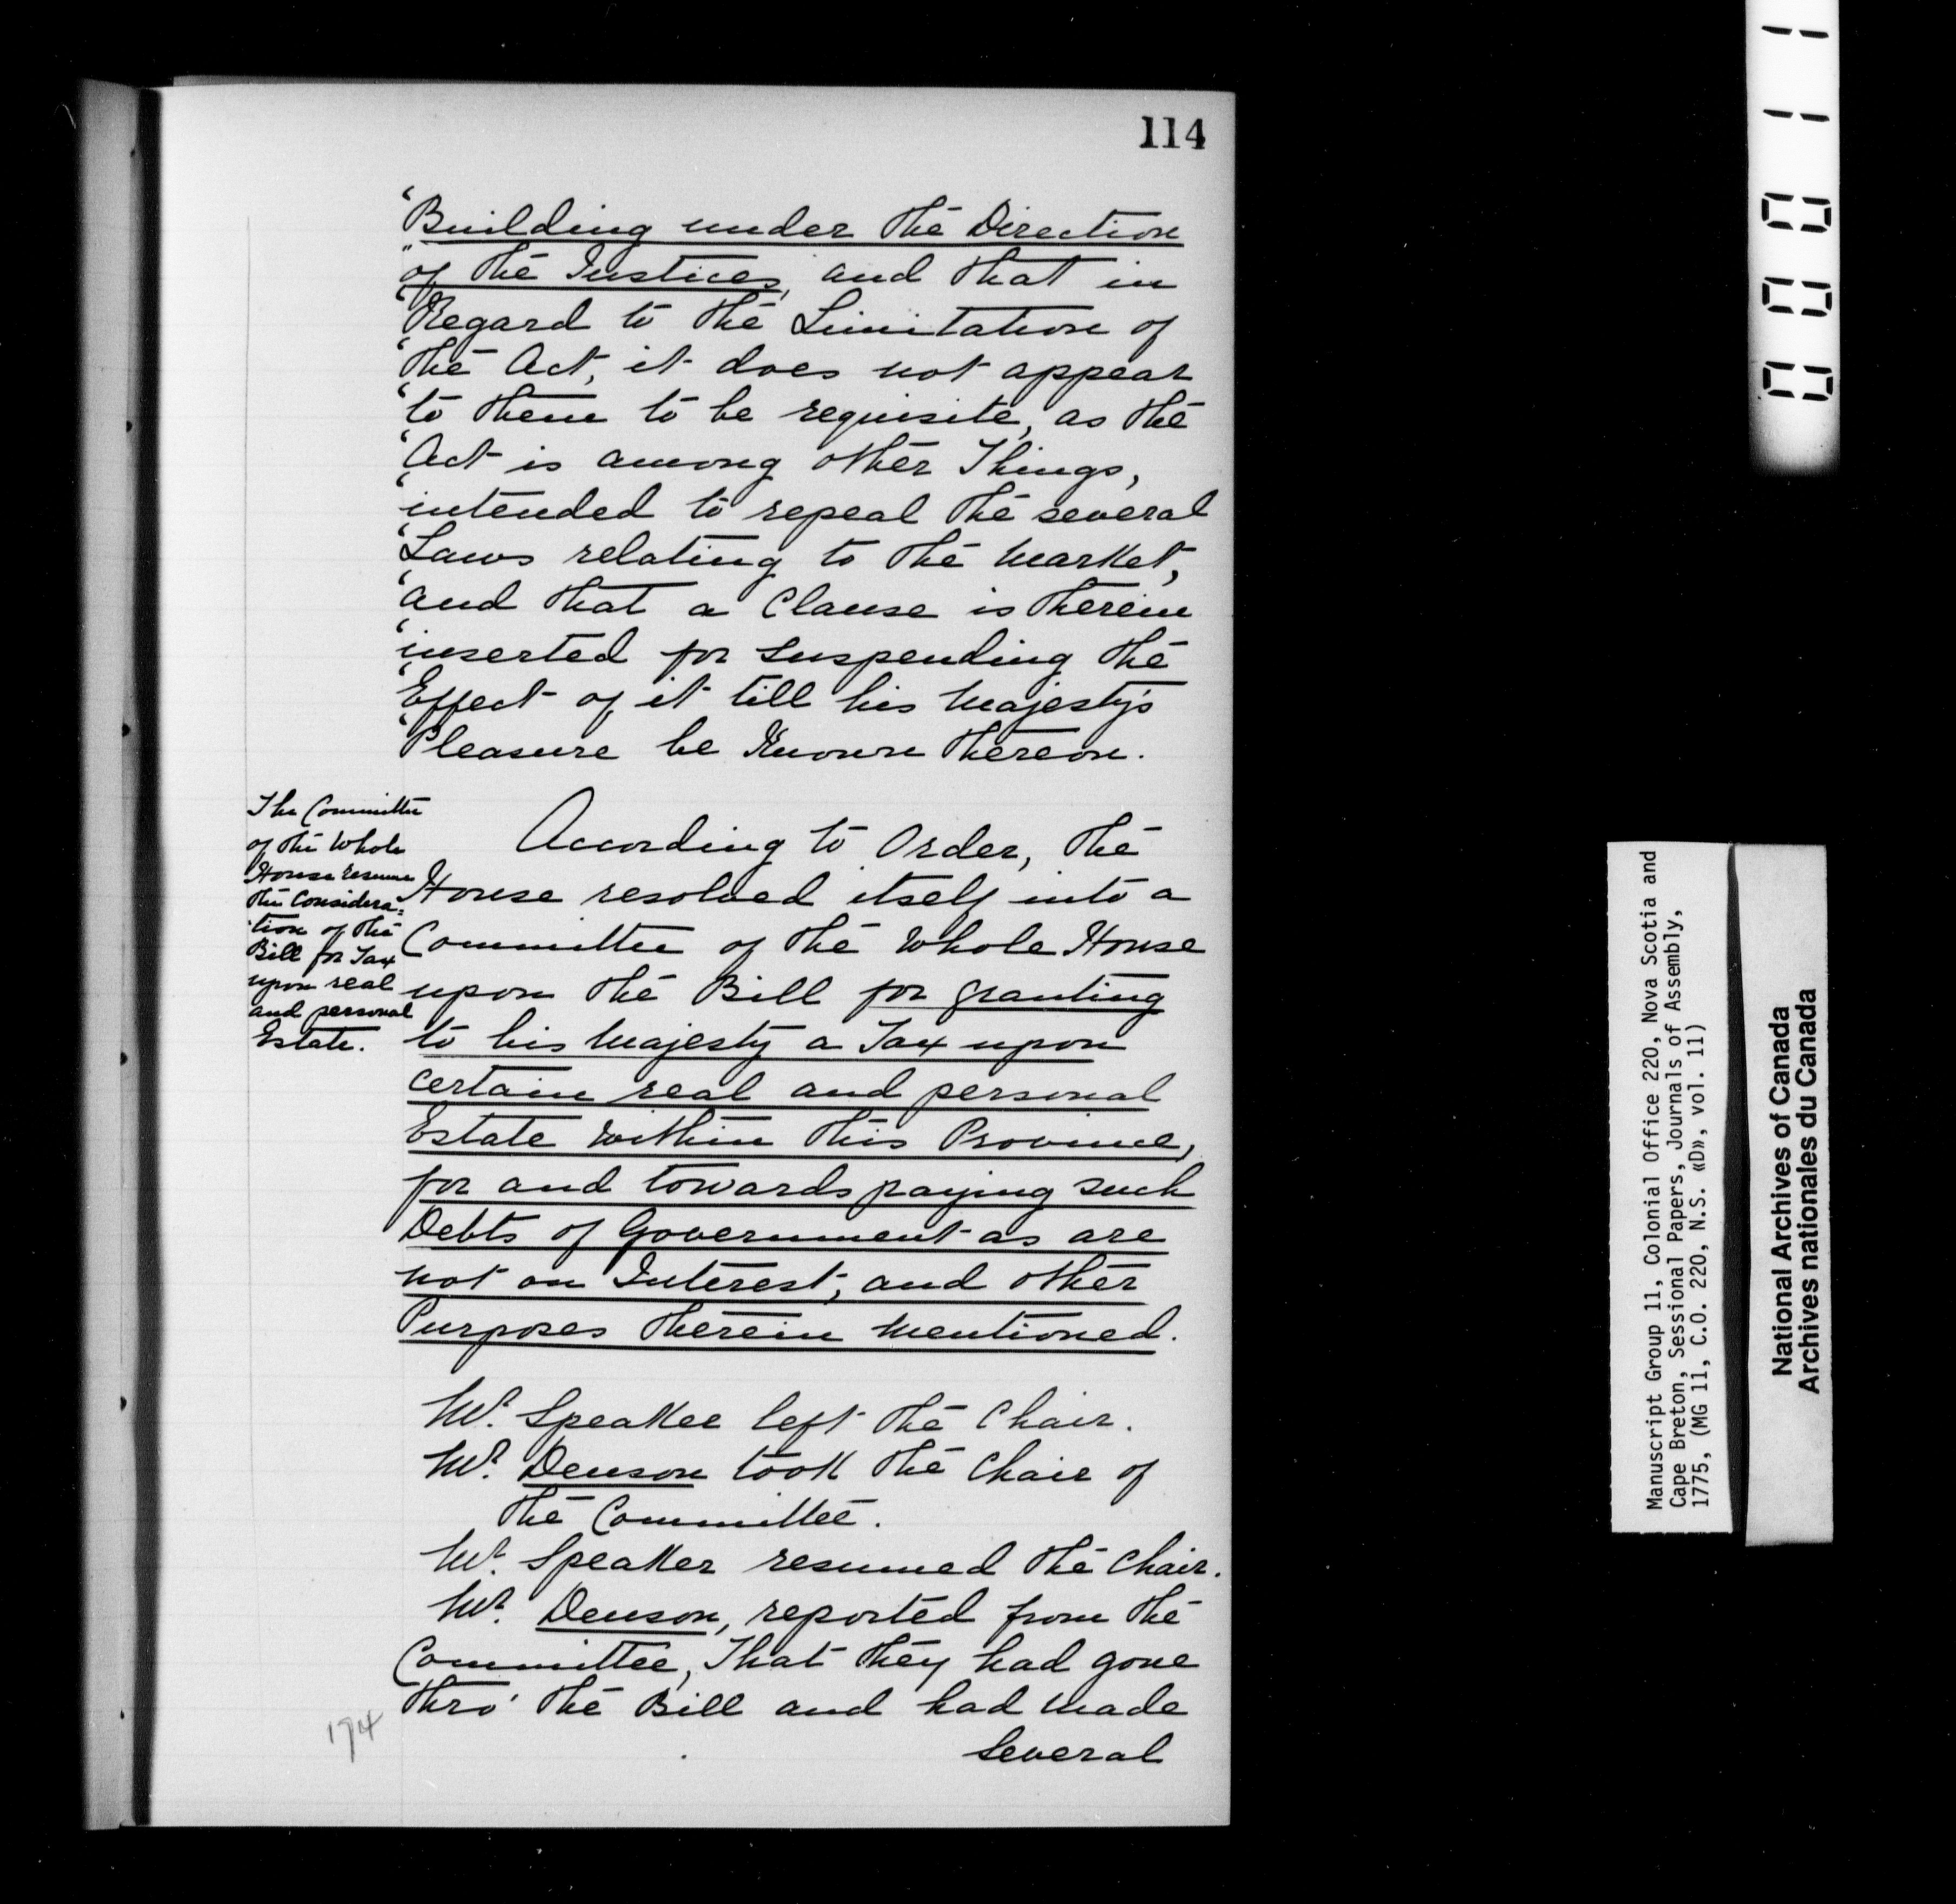 114
‘Building under the Direction
“of the Justices, and that in
‘Regard to the Limitation of
‘the Act, it does not appear
‘to them to be requisite, as the
‘Act is among other Things,
‘intended to repeal the several
‘Laws relating to the Market,
‘and that a Clause is therein
‘inserted for suspending the
‘Effect of it till his Majesty's
‘Pleasure be Known thereon.
The Committee
of the Whole
House resume
the Considera=
tion of the
Bill for Tax
upon real
and personal
Estate.
According to Order, the
House resolved itself into a
Committee of the Whole House
upon the Bill for granting
to his Majesty a Tax upon
certain real and personal
Estate within this Province,
for and towards paying such
Debts of Government as are
not on Interest, and other
Purposes therein mentioned.
Mr. Speaker left the Chair.
Mr. Denson took the Chair of
the Committee.
Mr. Speaker resumed the Chair.
Mr. Denson, reported from the
Committee, That they had gone
thro' the Bill and had made
several
174
Manuscript Group 11, Colonial Office 220, Nova Scotia and
Cape Breton, Sessional Papers, Journals of Assembly,
1775, (MG 11, C.O. 220, N.S. «D», vol. 11)
National Archives of Canada
Archives nationales du Canada